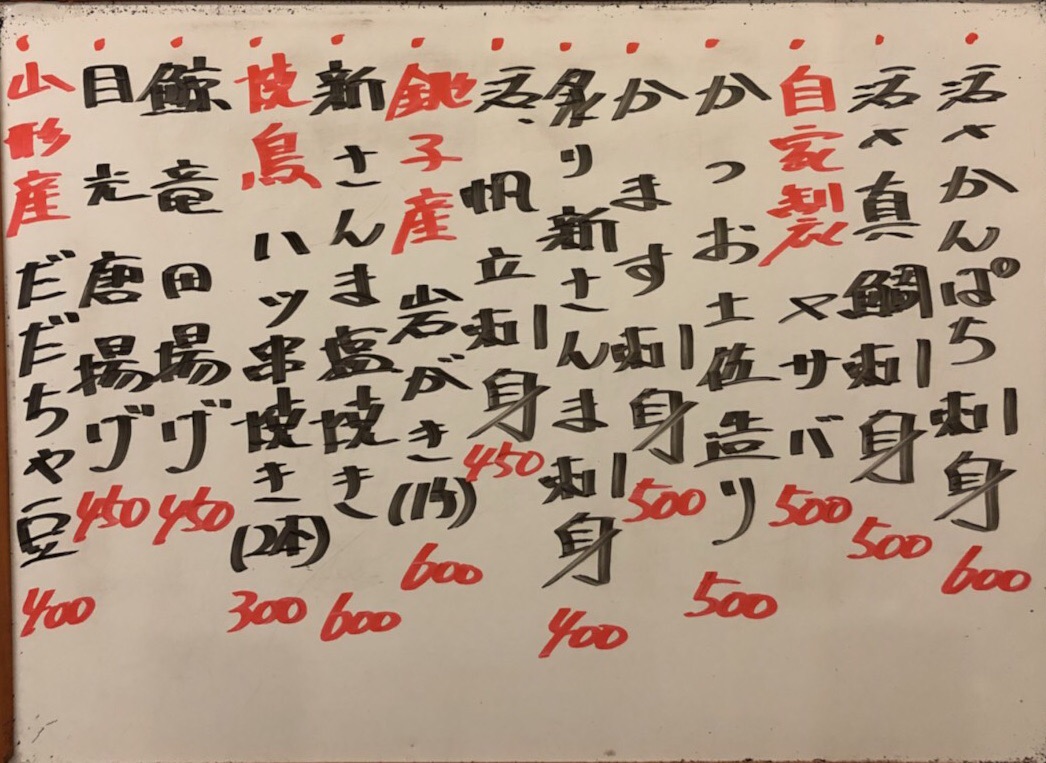 活〆かんぱち刺身 600
活〆真鯛刺身 500
自家製〆サバ 500
かつお土佐造り 500
かます刺身 500
炙り新さんま刺身 400
活帆立刺身 450
銚子産岩がき(1ヶ) 600
新さんま塩焼き 600
焼鳥ハツ串焼き(2本) 300
鯨竜田揚げ 450
目光唐揚げ 450
山形産だだちゃ豆 400